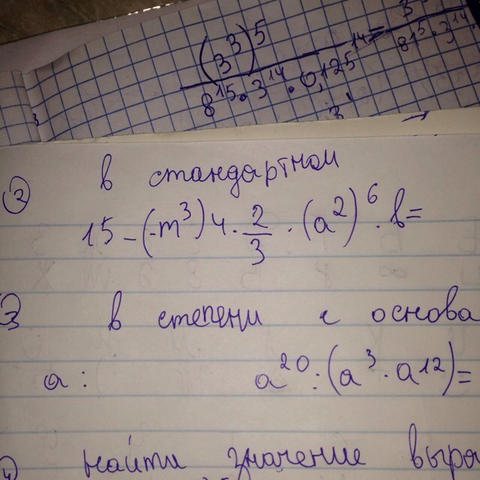 (3³)⁵
8¹⁵·3¹⁴·0,125¹⁴ =
8¹⁵·3¹⁴
② в стандартном
15-(-m³)4·2/3·(a²)⁶·b=
3 в степени с основа
a: a²⁰:(a³·a12)=
4) найти значение выра